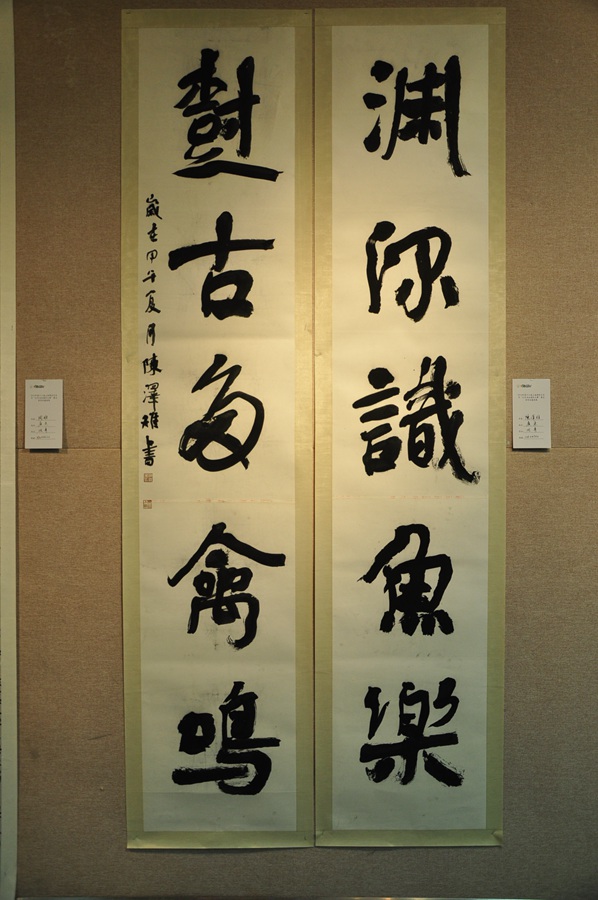 渊深識魚樂
樹古多禽鳴
歲在甲午夏月陳澤雄書